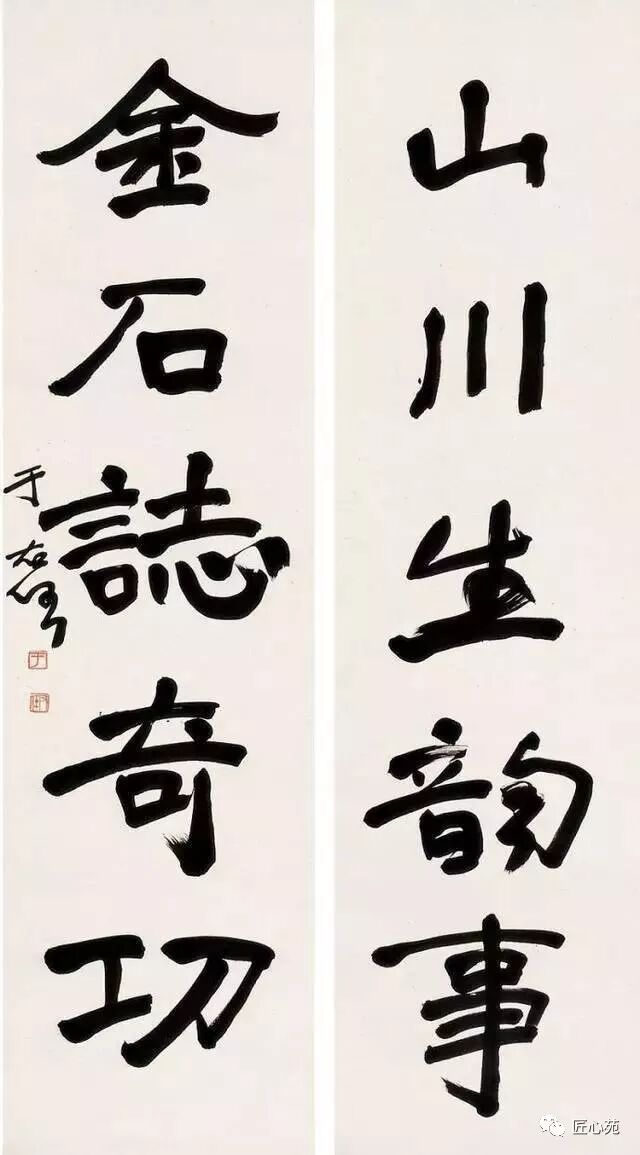 山川生韵事
金石誌奇功
于右任
匠心苑